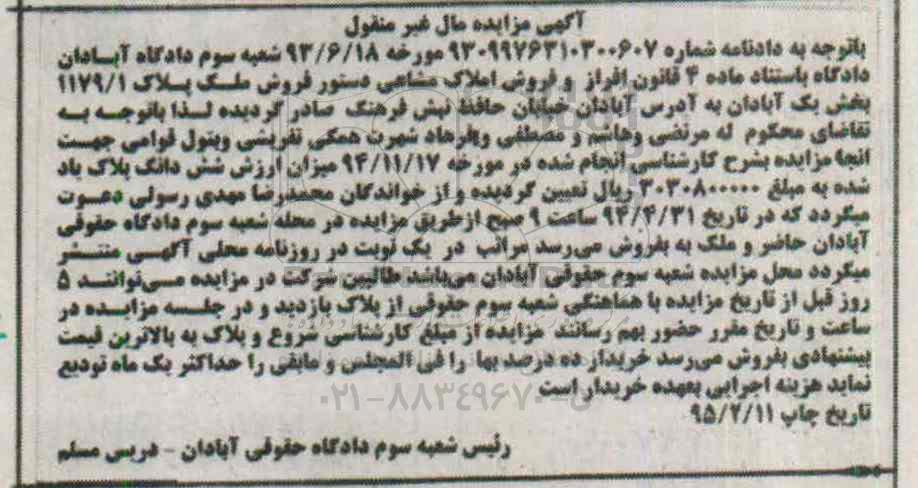 آگهی مزایده مال غیر منقول
باتوجه به دادنامه شماره ۹۳۰۹۹۷۶۳۱۰۳۰۰۶۰۷ مورخه ۹۳/۶/۱۸ شعبه سوم دادگاه آبادان
دادگاه باستناد ماده ۴ قانون افراز و فروش املاک مشاعی دستور فروش ملک پلاک ۱۱۷۹/۱
بخش یک آبادان به آدرس آبادان خیابان حافظ نبش فرهنگ صادر گردیده لذا باتوجه به
تقاضای محکوم له مرتضی وهاشم و مصطفی وفرهاد شهرت همگی تفریشی وبتول قوامی جهت
انجام مزایده بشرح کارشناسی انجام شده در مورخه ۹۴/۱۱/۱۷ میزان ارزش شش دانگ پلاک یاد
شده به مبلغ ۳۰۳۰۸۰۰۰۰۰ ریال تعیین گردیده و از خواندگان محمدرضا مهدی رسولی دعوت
میگردد که در تاریخ ۹۴/۴/۳۱ ساعت ۹ صبح ازطریق مزایده در محله شعبه سوم دادگاه حقوقی
آبادان حاضر و ملک به بفروش می‌رسد مراتب در یک نوبت در روزنامه محلی آگهی منتشر
میگردد محل مزایده شعبه سوم حقوقی آبادان می‌باشد طالبین شرکت در مزایده می‌توانند ۵
روز قبل از تاریخ مزایده با هماهنگی شعبه سوم حقوقی از پلاک بازدید و در جلسه مزایده در
ساعت و تاریخ مقرر حضور بهم رسانند مزایده از مبلغ کارشناسی شروع و پلاک به بالاترین قیمت
پیشنهادی بفروش می‌رسد خریدار ده درصد بها را فی المجلس و مابقی را حداکثر یک ماه تودیع
نماید هزینه اجرایی بعهده خریدار است
۰۲۱-۸۸۳۴۹۶۷۰
تاریخ چاپ ۹۵/۲/۱۱
رئیس شعبه سوم دادگاه حقوقی آبادان - دریس مسلم